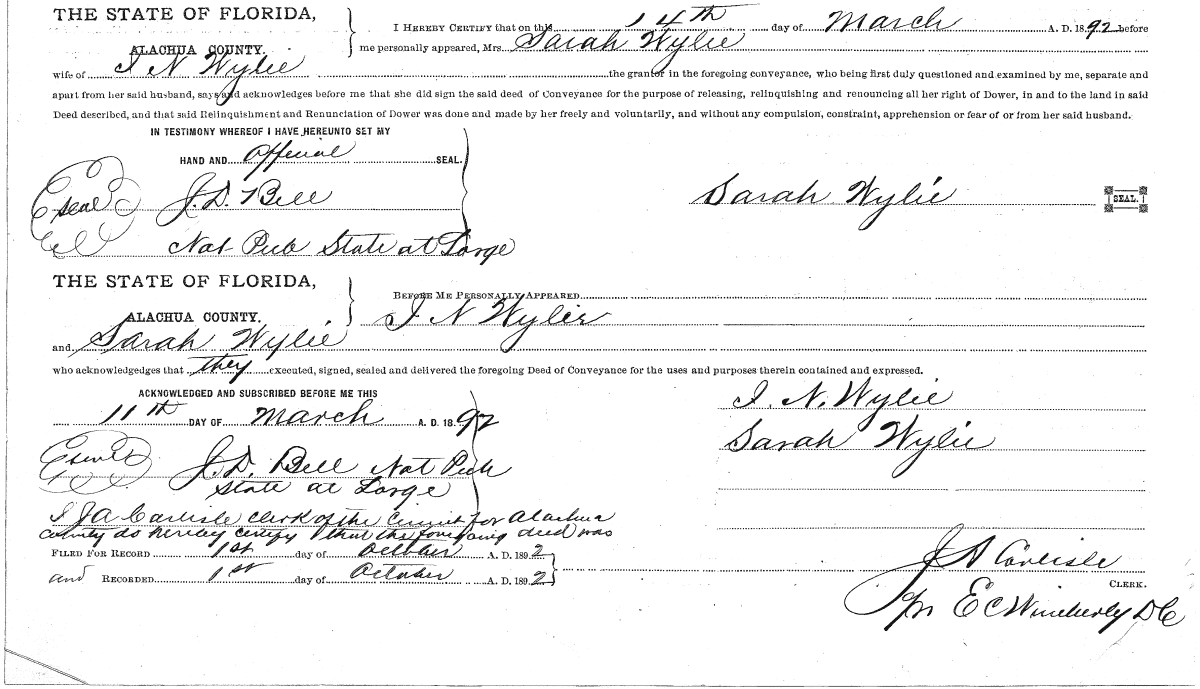 THE STATE OF FLORIDA,
ALACHUA COUNTY.
I HEREBY CERTIFY that on this 14th day of March A. D. 1892 before
me personally appeared, Mrs. Sarah Wylie
wife of I N Wylie the grantor in the foregoing conveyance, who being first duly questioned and examined by me, separate and
apart from her said husband, says and acknowledges before me that she did sign the said deed of Conveyance for the purpose of releasing, relinquishing and renouncing all her right of Dower, in and to the land in said
Deed described, and that said Relinquishment and Renunciation of Dower was done and made by her freely and voluntarily, and without any compulsion, constraint, apprehension or fear of or from her said husband.
IN TESTIMONY WHEREOF I HAVE HEREUNTO SET MY
HAND AND Official SEAL.
Seal J. D. Bell
Sarah Wylie SEAL.
Nat Pub State at Large
THE STATE OF FLORIDA,
ALACHUA COUNTY.
BEFORE ME PERSONALLY APPEARED
I N Wylie
and Sarah Wylie
who acknowledgedges that they executed, signed, sealed and delivered the foregoing Deed of Conveyance for the uses and purposes therein contained and expressed.
ACKNOWLEDGED AND SUBSCRIBED BEFORE ME THIS
11th DAY OF March A. D. 1892
I. N. Wylie
Sarah Wylie
J. D. Bell Nat Pub
State at Large
I J A Carlisle clerk of the Circuit for Alachua
County do hereby certify that the foregoing deed was
FILED FOR RECORD 1st day of October A. D. 1892
and RECORDED 1st day of October A. D. 1892
J A Carlisle
CLERK.
E C Wimberly D C